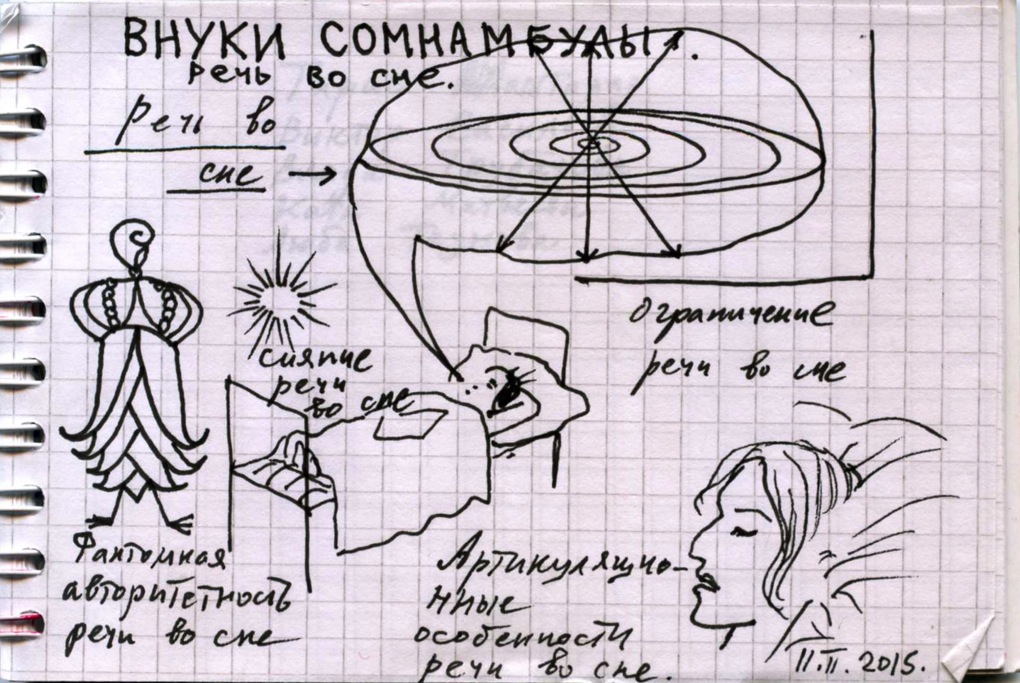 ВНУКИ СОМНАМБУЛЫ.
речь во сне.
Речь во
сне →
Ограничение
речи во сне
сияние
речи
во сне
Фантомная
авторитетность
речи во сне
Артикуляцио-
нные
особенности
речи во сне.
11.II.2015.